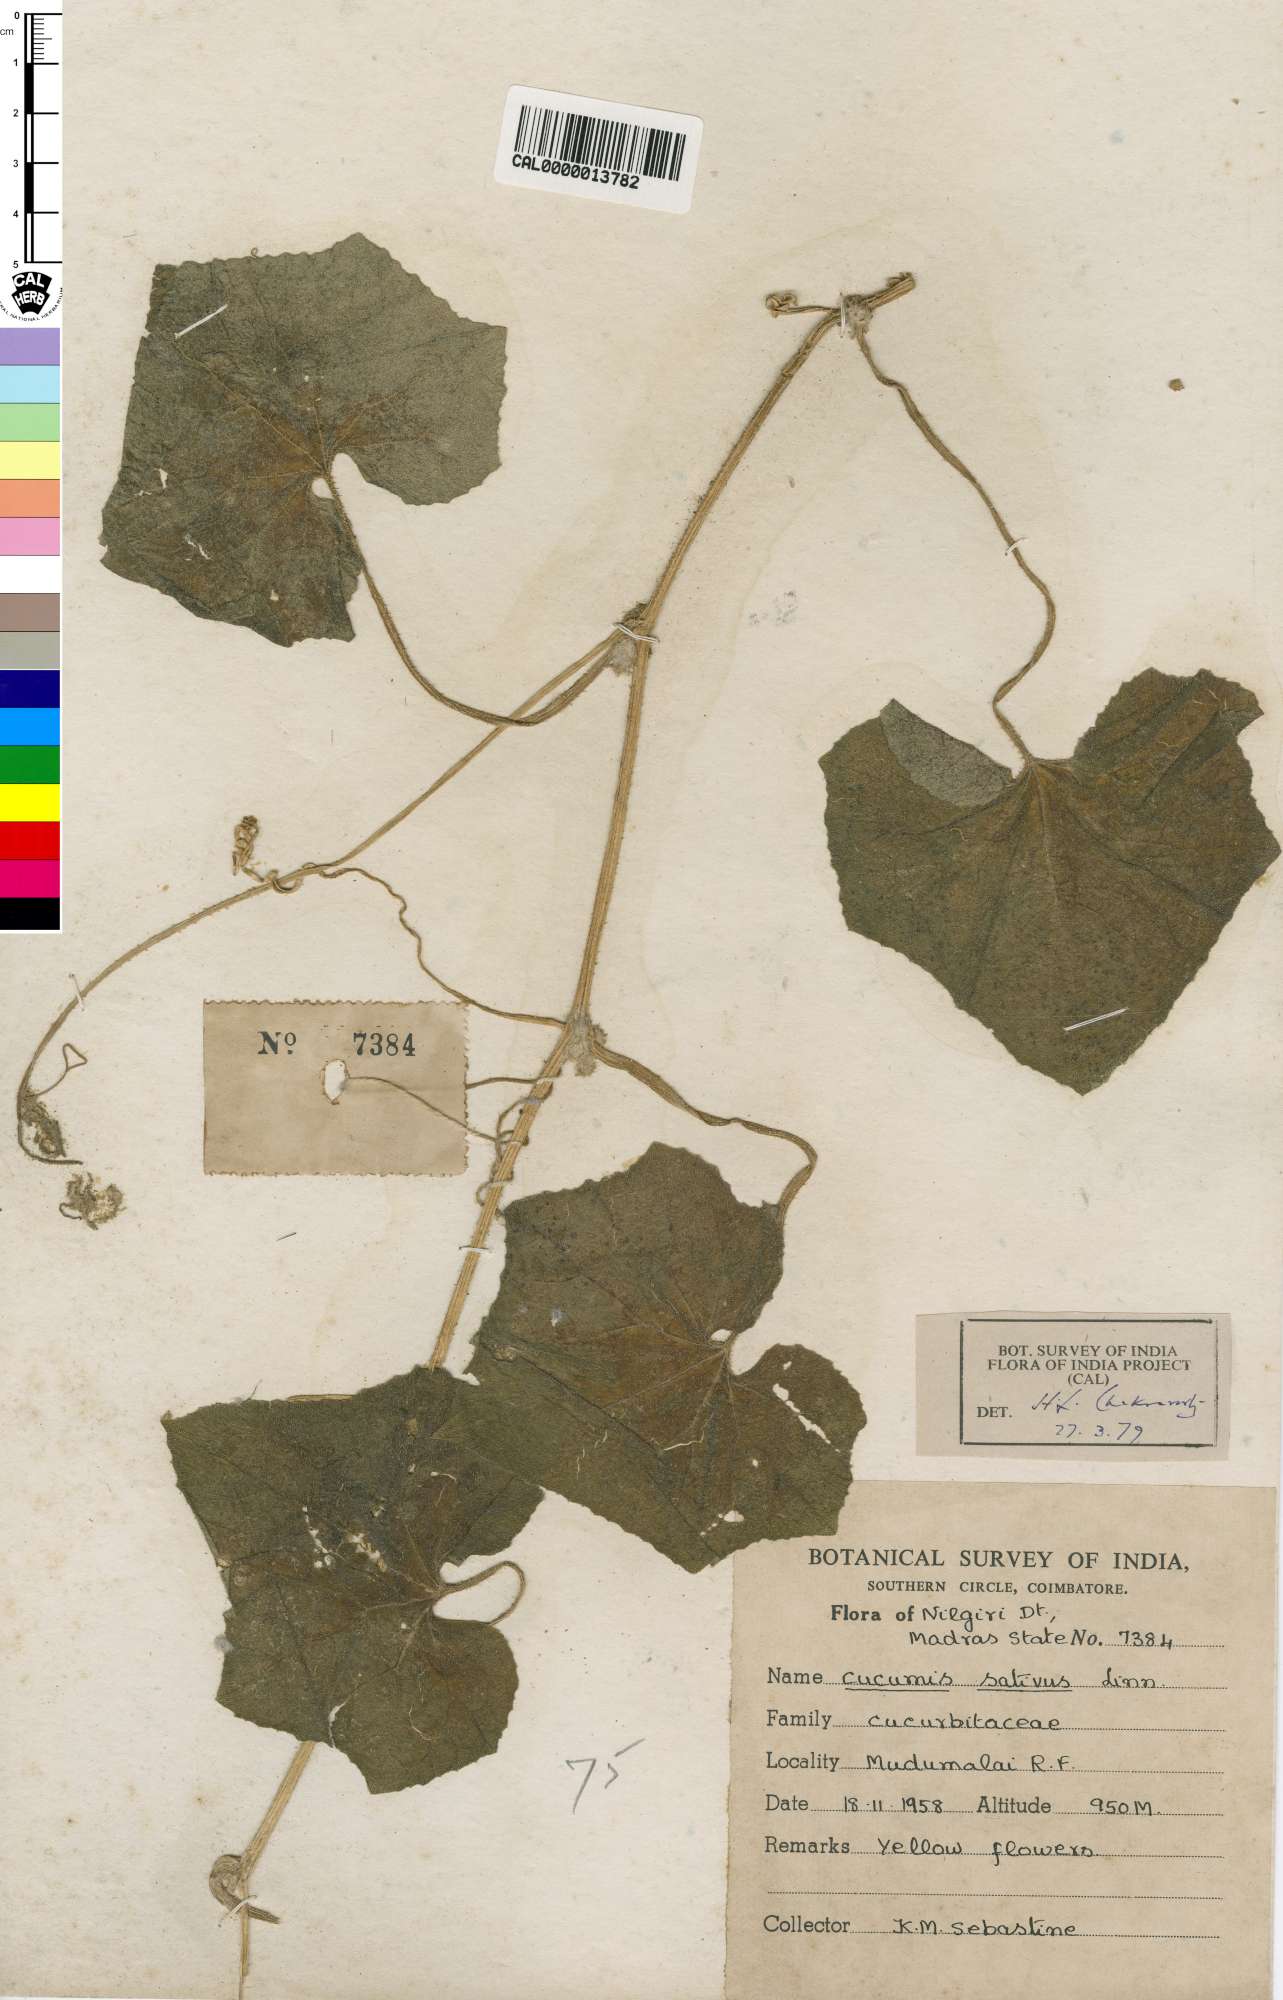 0
cm
1
2
3
4
5
CAL
HERB
CAL0000013782
Nº 7384
BOT. SURVEY OF INDIA
FLORA OF INDIA PROJECT
(CAL)
DET. H.L. Chakravarty
27.3.79
BOTANICAL SURVEY OF INDIA,
SOUTHERN CIRCLE, COIMBATORE.
Flora of Nilgiri Dt.,
Madras State No. 7384
Name cucumis sativus Linn.
Family cucurbitaceae
Locality Mudumalai R.F.
Date 18.11.1958 Altitude 950 M.
Remarks Yellow flowers
Collector K.M. Sebastine
75